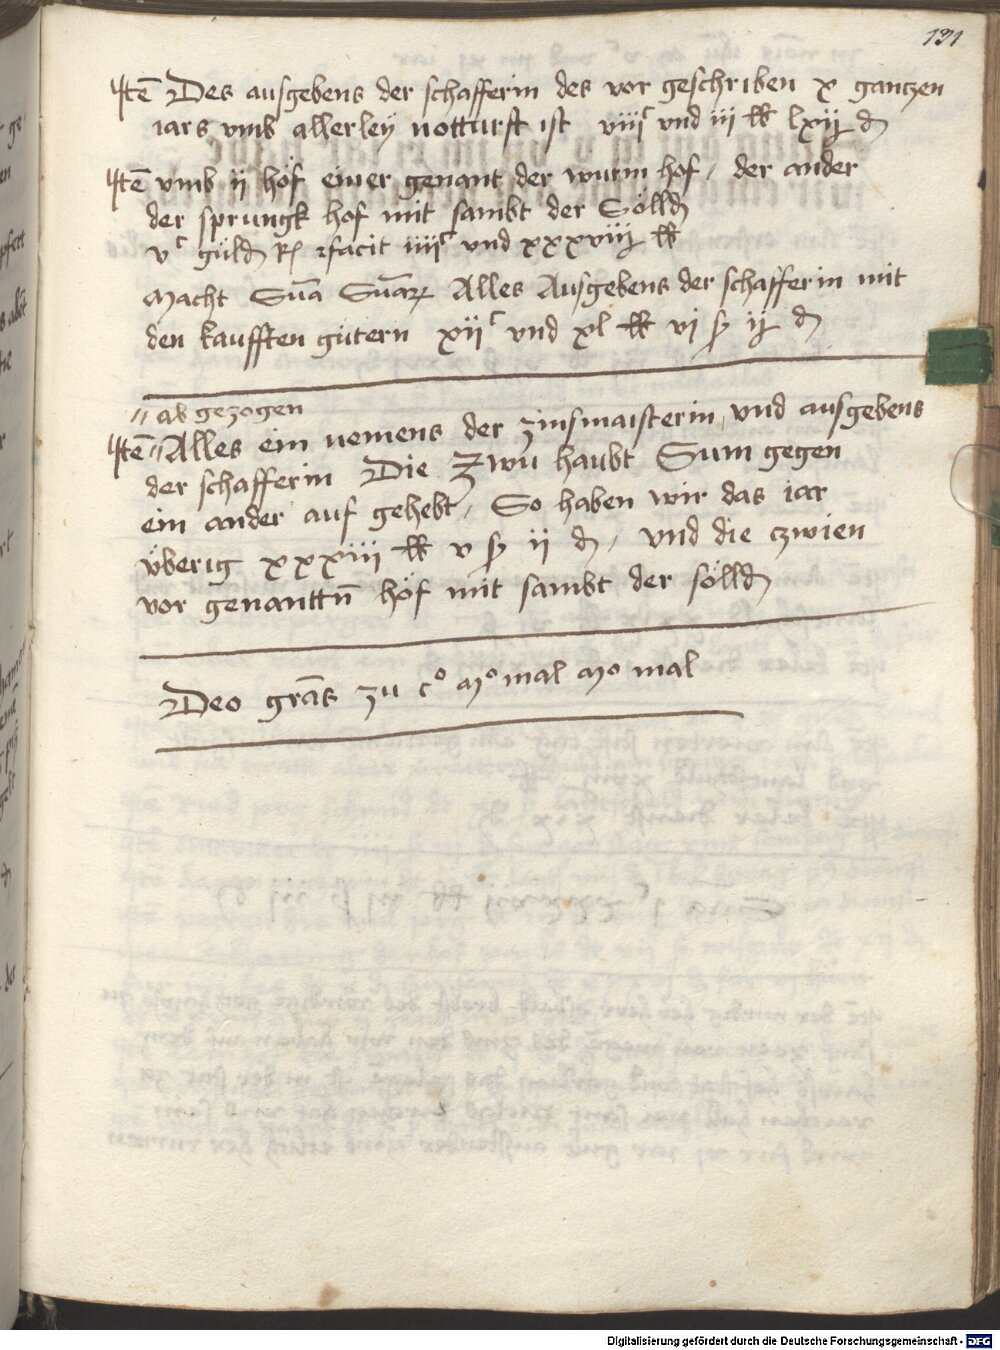 131
Itē Des ausgebens der schafferin des vor geschriben x gantzen
iars vmb allerley notturft ist viiiᶜ vnd iij ℔ lxij ₰
Itē vmb ij höf einer genant der wurm hof / der ander
der sprungk hof mit sambt der Sölld
vᶜ guld R facit iiiiᶜ vnd xxxviij ℔
Macht Sūa Sūarꝝ Alles Ausgebens der schafferin mit
den kaufften gütern xijᶜ vnd xl ℔ vj ß ij ₰
〃 ab gezogen
Itē 〃 Alles ein nemens der zinsmaisterin vnd ausgebens
der schafferin Die Zwu haubt Sum gegen
ein ander auf gehebt / So haben wir das iar
überig xxxiii ℔ v ß ij ₰ / vnd die czwien
vor genanttn̄ höf mit sambt der sölld
Deo grās zu cº Mº mal Mº mal
Digitalisierung gefördert durch die Deutsche Forschungsgemeinschaft - DFG